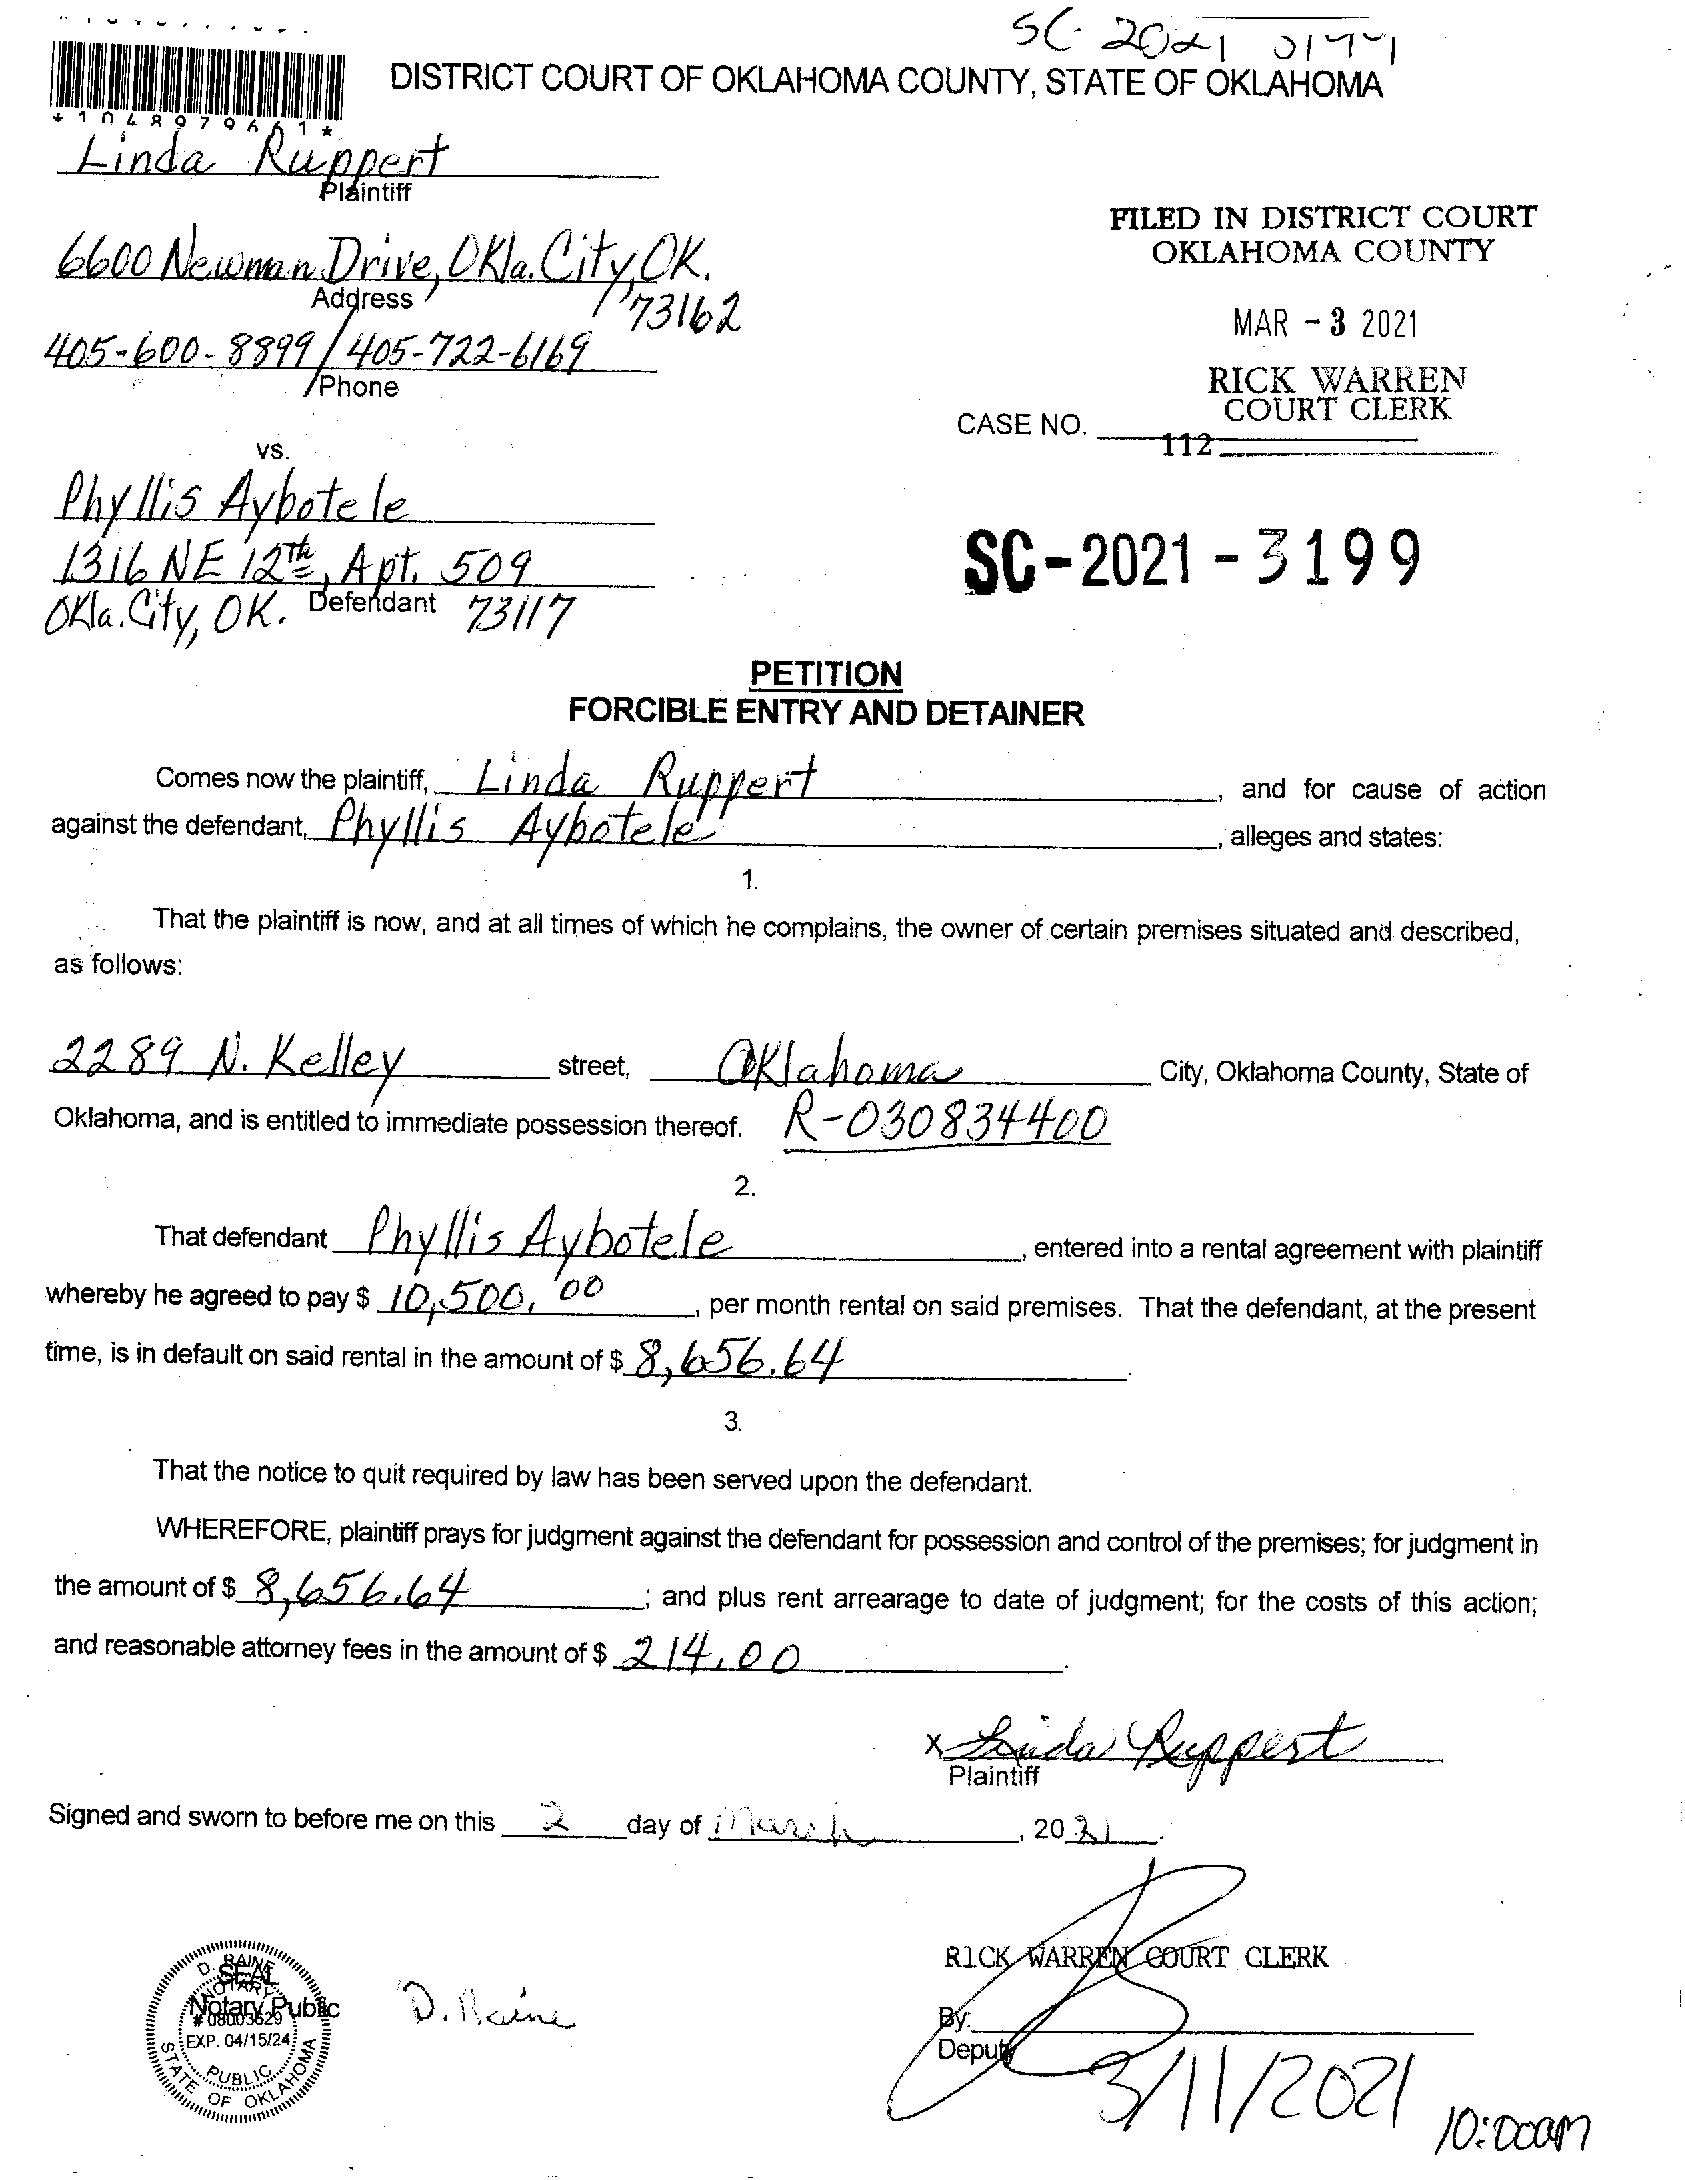 SC-2021
DISTRICT COURT OF OKLAHOMA COUNTY, STATE OF OKLAHOMA
*1048979661*
Linda Ruppert
Plaintiff
6600 Newman Drive, Okla. City, OK.
Address
73162
405-600-8899 / 405-722-6169
Phone
FILED IN DISTRICT COURT
OKLAHOMA COUNTY
MAR - 3 2021
RICK WARREN
COURT CLERK
CASE NO.
112
vs.
Phyllis Aybotele
1316 NE 12th, Apt. 509
Defendant
Okla. City, OK. 73117
SC-2021-3199
PETITION
FORCIBLE ENTRY AND DETAINER
Comes now the plaintiff, Linda Ruppert, and for cause of action
against the defendant, Phyllis Aybotele, alleges and states:
1.
That the plaintiff is now, and at all times of which he complains, the owner of certain premises situated and described,
as follows:
2289 N. Kelley street, Oklahoma City, Oklahoma County, State of
Oklahoma, and is entitled to immediate possession thereof. R-030834400
2.
That defendant Phyllis Aybotele, entered into a rental agreement with plaintiff
whereby he agreed to pay $ 10,500.00, per month rental on said premises. That the defendant, at the present
time, is in default on said rental in the amount of $ 8,656.64.
3.
That the notice to quit required by law has been served upon the defendant.
WHEREFORE, plaintiff prays for judgment against the defendant for possession and control of the premises; for judgment in
the amount of $ 8,656.64; and plus rent arrearage to date of judgment; for the costs of this action;
and reasonable attorney fees in the amount of $ 214.00.
x Linda Ruppert
Plaintiff
Signed and sworn to before me on this 2 day of March, 2021.
RICK WARREN COURT CLERK
D. RAINE
SEAL
NOTARY
Notary Public
# 08003629
EXP. 04/15/24
PUBLIC
STATE OF OKLAHOMA
D. Raine
By:
Deputy
3/11/2021
10:00am